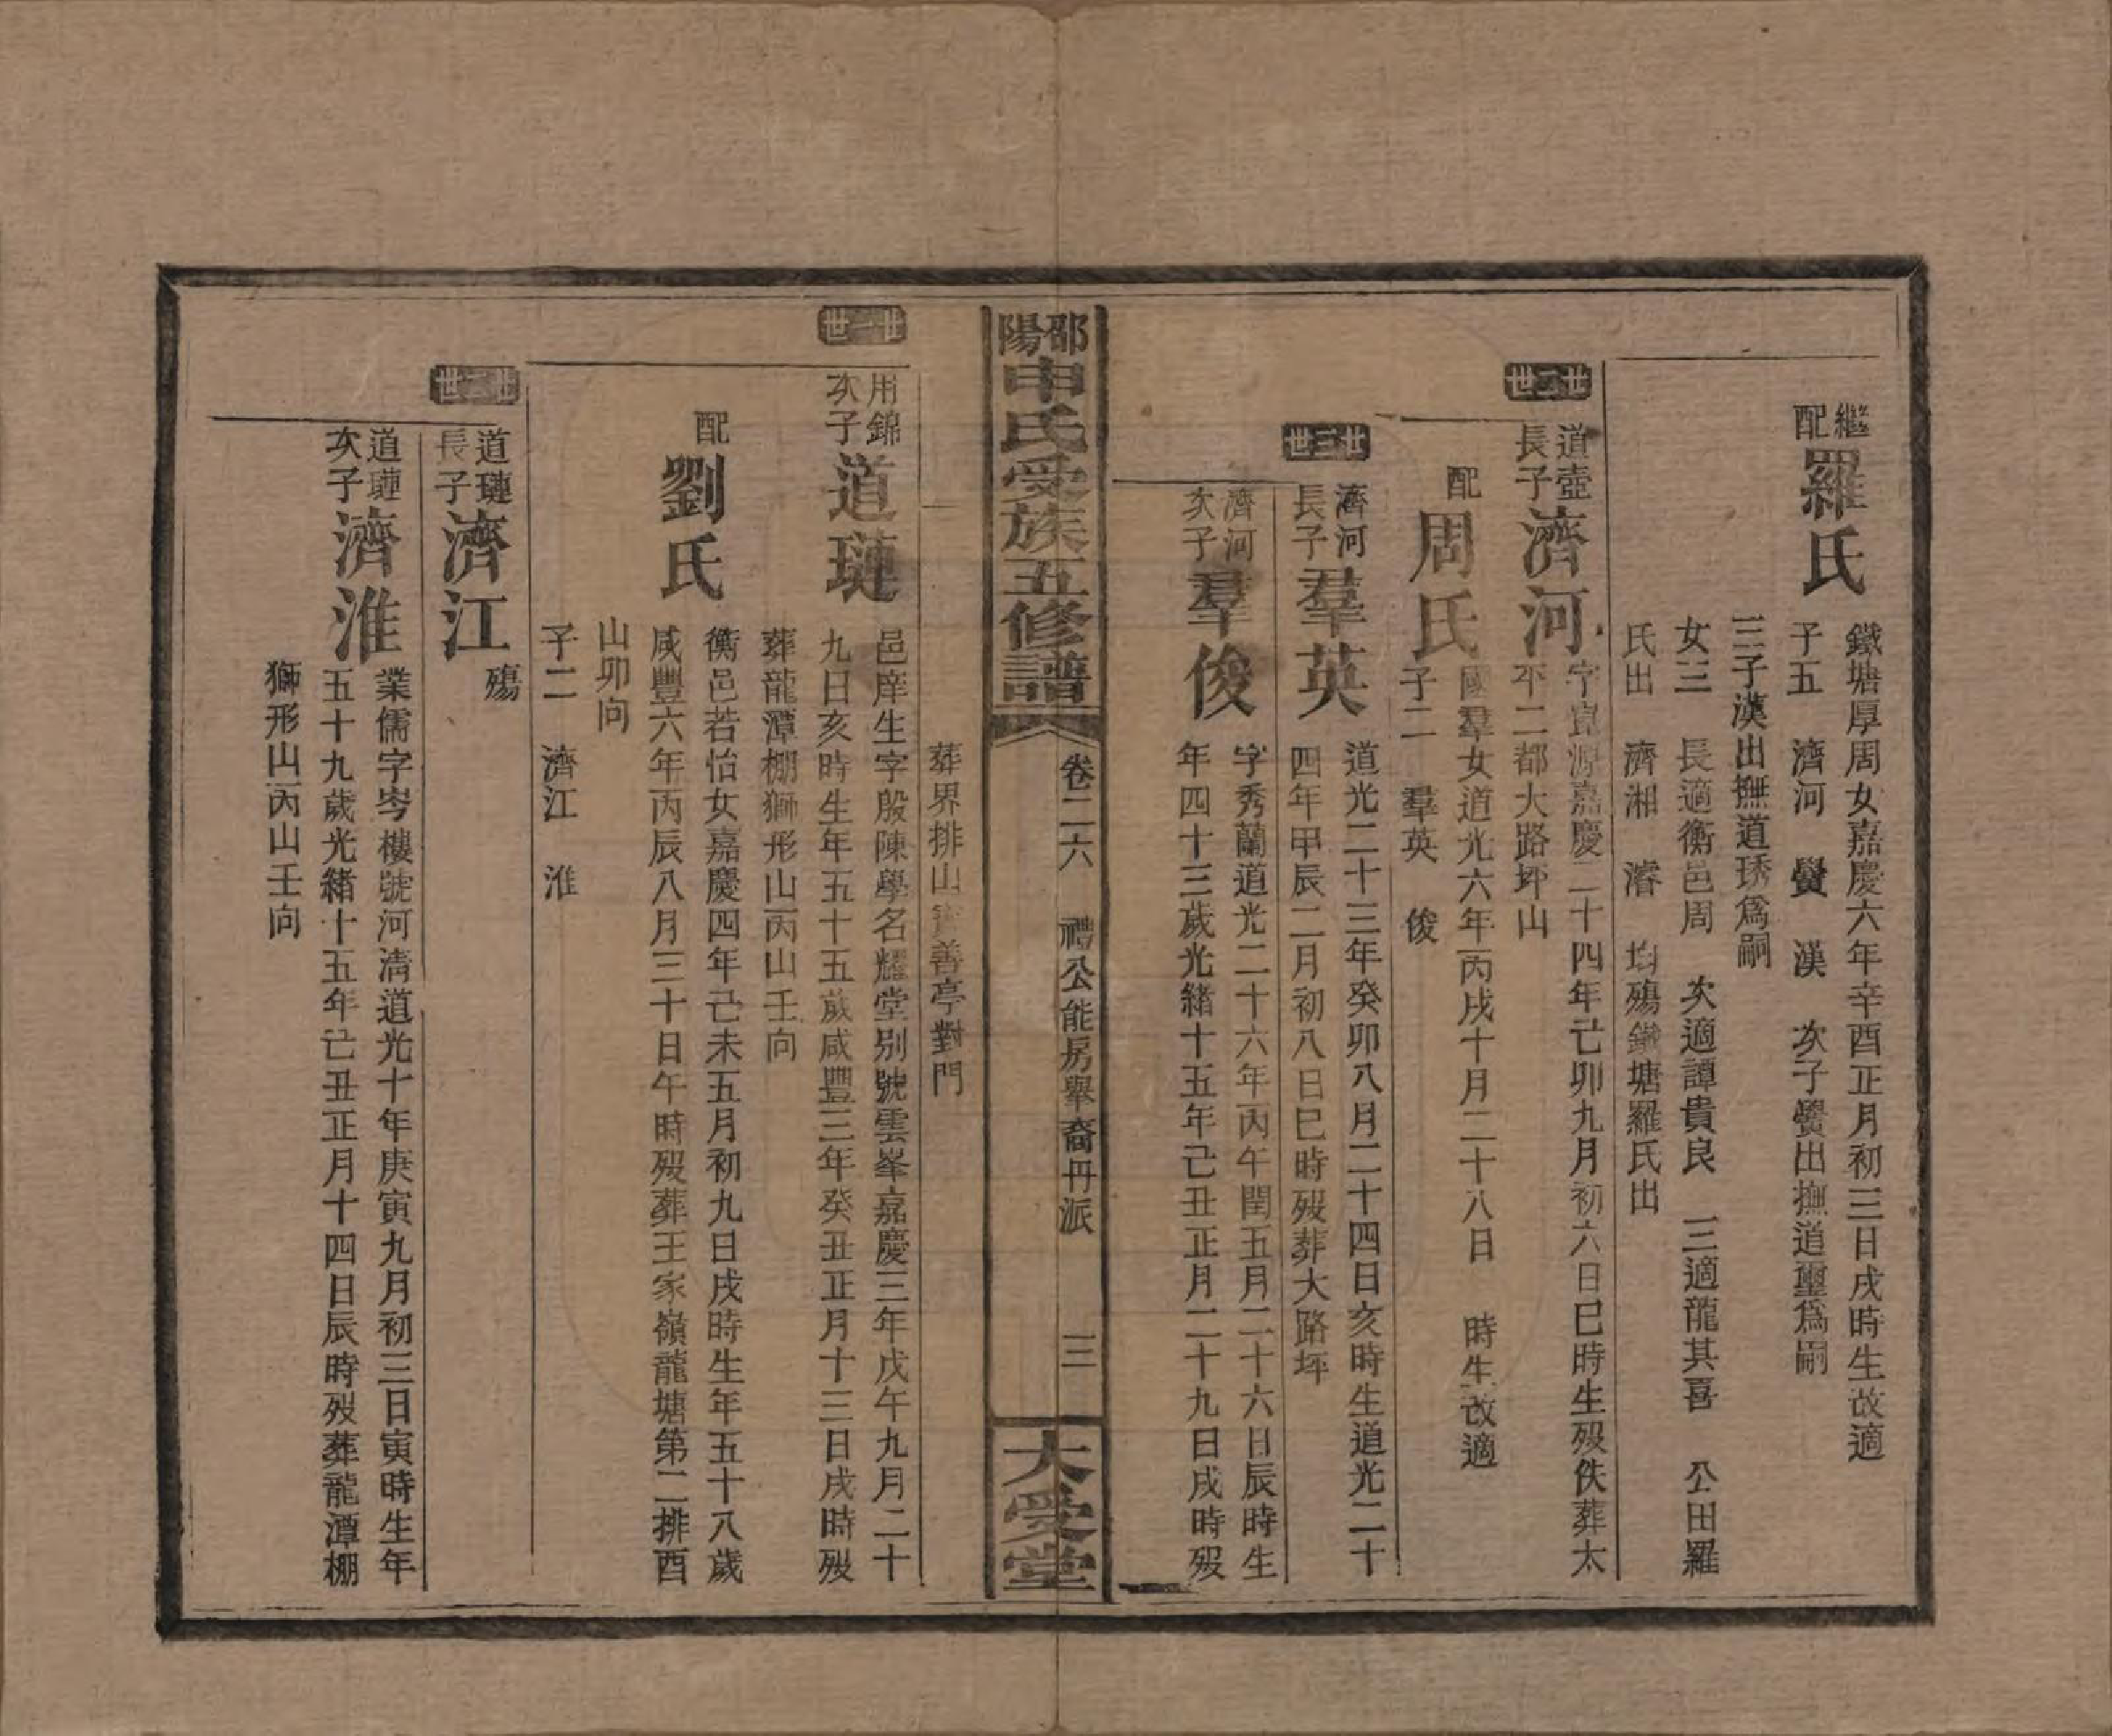 繼配羅氏
鐵塘厚周女嘉慶六年辛酉正月初三日戌時生改適
子五 濟河 濙 漢 次子濙出撫道璽爲嗣
三子漢出撫道琇爲嗣
女三 長適衡邑周 次適譚貴良 三適龍其喜 公田羅
氏出 濟湘 濬 均殤鐵塘羅氏出
廿二世
道壺長子濟河
字崑源嘉慶二十四年己卯九月初六日巳時生歿佚葬太
平二都大路坪山
配周氏
國羣女道光六年丙戌十月二十八日 時生改適
子二 羣英 俊
廿三世
濟河長子羣英
道光二十三年癸卯八月二十四日亥時生道光二十
四年甲辰二月初八日巳時歿葬大路坪
濟河次子羣俊
字秀蘭道光二十六年丙午閏五月二十六日辰時生
年四十三歲光緒十五年己丑正月二十九日戌時歿
邵陽申氏受族五修譜
卷二六 禮公能房舉裔冉派 三
大受堂
葬界排山 善亭對門
廿一世
用錦次子道璉
邑庠生字殷陳學名耀堂別號雲峯嘉慶三年戊午九月二十
九日亥時生年五十五歲咸豐三年癸丑正月十三日戌時歿
葬龍潭棚獅形山丙山壬向
配劉氏
衡邑若怡女嘉慶四年己未五月初九日戌時生年五十八歲
咸豐六年丙辰八月三十日午時歿葬王家嶺龍塘第二排酉
山卯向
子二 濟江 淮
廿二世
道璉長子濟江
殤
道璉次子濟淮
業儒字岑樓號河清道光十年庚寅九月初三日寅時生年
五十九歲光緒十五年己丑正月十四日辰時歿葬龍潭棚
獅形山丙山壬向